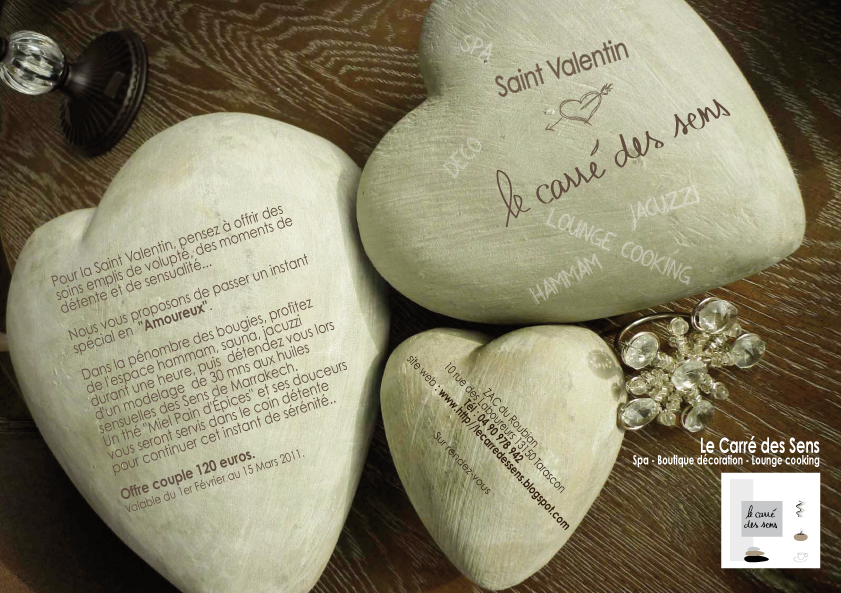 SPA
Saint Valentin
DECO
le carré des sens
JACUZZI
LOUNGE COOKING
HAMMAM
Pour la Saint Valentin, pensez à offrir des
soins emplis de volupté, des moments de
détente et de sensualité...
Nous vous proposons de passer un instant
spécial en "Amoureux".
Dans la pénombre des bougies, profitez
de l'espace hammam, sauna, jacuzzi
durant une heure, puis détendez vous lors
d'un modelage de 30 mns aux huiles
sensuelles des Sens de Marrakech.
Un thé "Miel Pain d'Epices" et ses douceurs
vous seront servis dans le coin détente
pour continuer cet instant de sérénité..
Offre couple 120 euros.
Valable du 1er Février au 15 Mars 2011.
ZAC du Roubian
10 rue des Laboureurs 13150 Tarascon
Tél : 04 90 978 942
site web : www.http//lecarredessens.blogspot.com
Sur rendez-vous
Le Carré des Sens
Spa - Boutique décoration - Lounge cooking
le carré
des sens